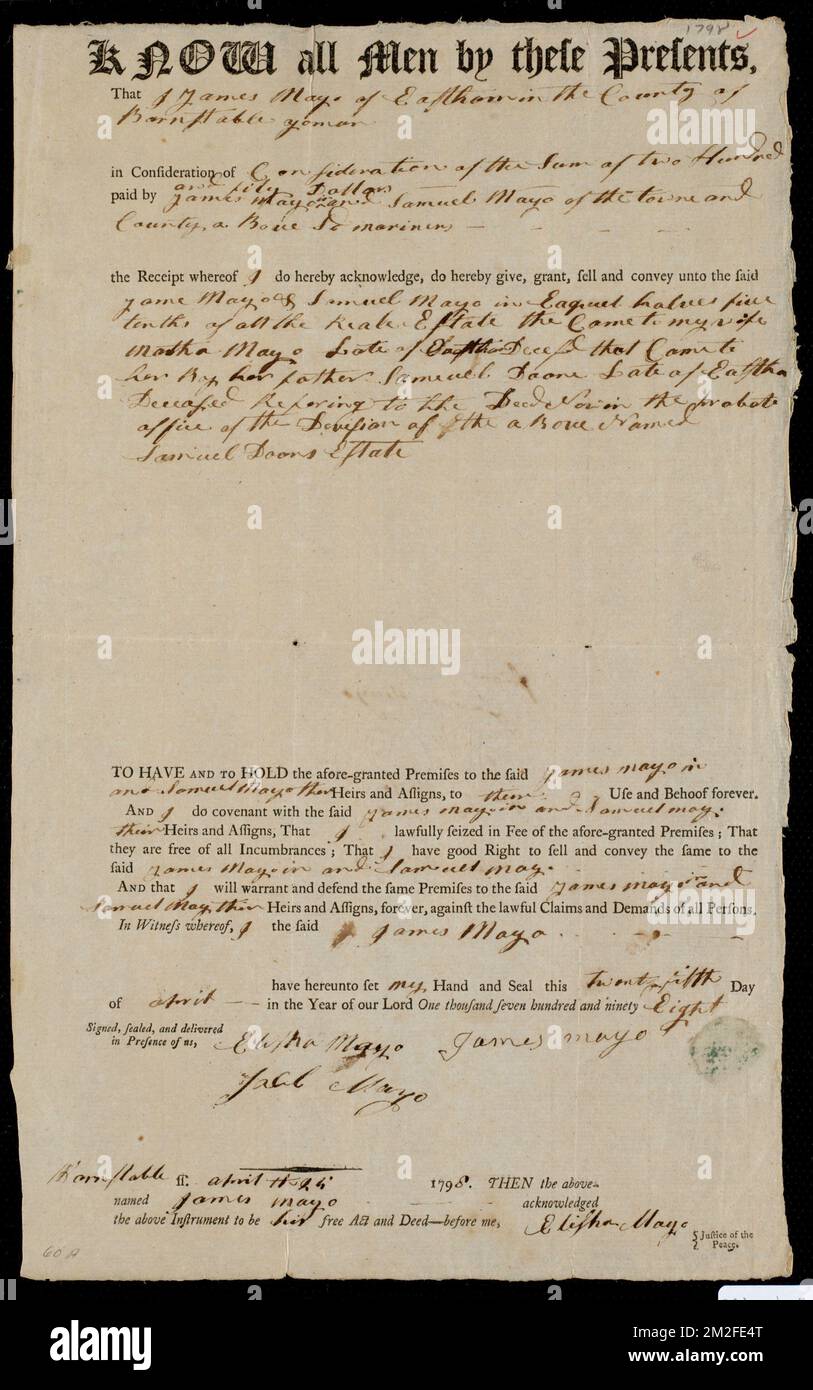 1798
KNOW all Men by theſe Preſents,
That I James Mayo of Eastham in the County of
Barnstable yoman
in Conſideration of Consideration of the Sum of two Hundred
and fifty Dollars
paid by James Mayo and Samuel Mayo of the towne and
County, a Bove Sd mariners
the Receipt whereof I do hereby acknowledge, do hereby give, grant, ſell and convey unto the ſaid
Jame Mayo & Samuel Mayo in Eaquel halves five
tenths of all the Reale Estate the Came to my wife
Late of Deces'd that Came to
her By her father Samuel Doane Late of Eastha
Deceased Refering to the Deed Now in the probate
office of the Devision of the a Bove Named
Samuel Doans Estate
TO HAVE AND TO HOLD the afore-granted Premiſes to the ſaid James mayo
and Samuel Mayo ther Heirs and Aſſigns, to their Uſe and Behoof forever.
AND I do covenant with the ſaid James mayo and Samuel mayo
their Heirs and Aſſigns, That I lawfully ſeized in Fee of the afore-granted Premiſes ; That
they are free of all Incumbrances ; That I have good Right to ſell and convey the ſame to the
ſaid James Mayo and Samuel mayo
AND that I will warrant and defend the ſame Premiſes to the ſaid James mayo and
Samuel Mayo their Heirs and Aſſigns, forever, againſt the lawful Claims and Demands of all Perſons.
In Witneſs whereof, I the ſaid James Mayo
have hereunto ſet my Hand and Seal this twenty fifth Day
of april in the Year of our Lord One thouſand ſeven hundred and ninety Eight
Signed, ſealed, and delivered
in Preſence of us, Elisha Mayo James mayo
Mayo
Barnstable ſſ. april 25 1798. THEN the above-
named James mayo acknowledged
the above Inſtrument to be his free Act and Deed—before me, Elisha Mayo
Juſtice of the
Peace.
60 A
alamy
Image ID: 2M2FE4T
www.alamy.com